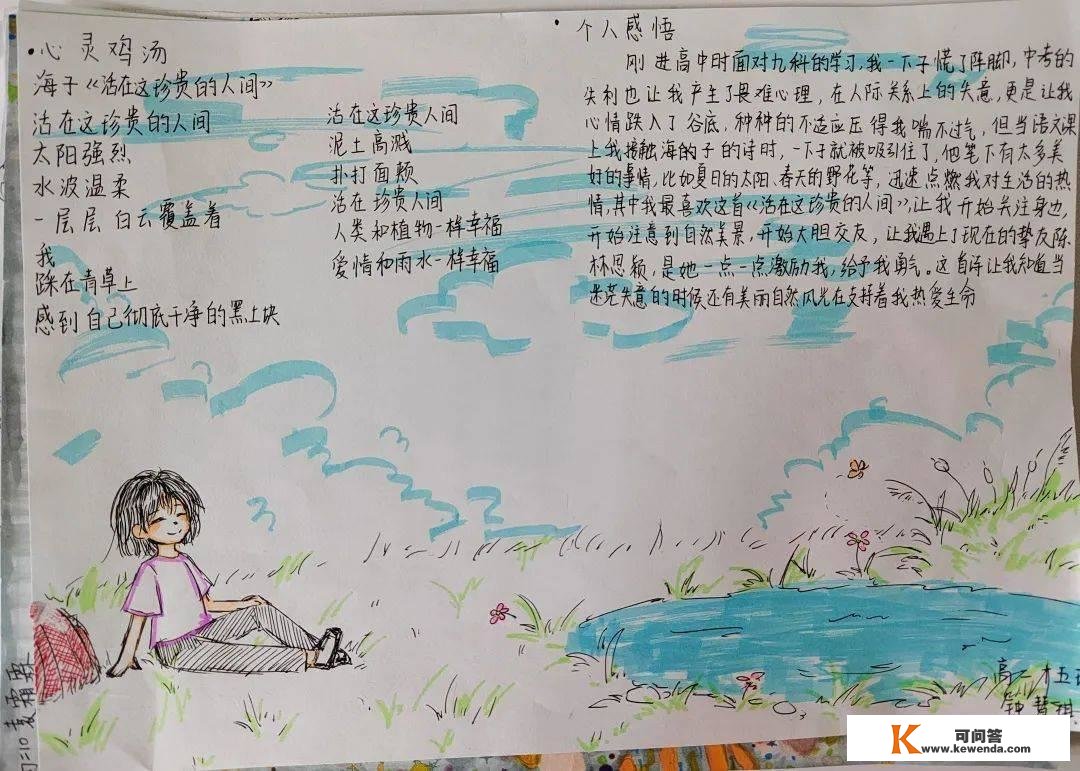 心灵鸡汤
海子《活在这珍贵的人间》
活在这珍贵的人间
太阳强烈
水波温柔
一层层白云覆盖着
我
踩在青草上
感到自己彻底干净的黑土块
活在这珍贵人间
泥土高溅
扑打面颊
活在珍贵人间
人类和植物一样幸福
爱情和雨水一样幸福
个人感悟
刚进高中时面对九科的学习,我一下子慌了阵脚,中考的
失利也让我产生了畏难心理,在人际关系上的失意,更是让我
心情跌入了谷底,种种的不适应压得我喘不过气,但当语文课
上我接触海的子的诗时,一下子就被吸引住了,他笔下有太多美
好的事情,比如夏日的太阳、春天的野花等,迅速点燃我对生活的热
情,其中我最喜欢这首《活在这珍贵的人间》,让我开始关注身边,
开始注意到自然美景,开始大胆交友,让我遇上了现在的挚友陈
林思颖,是她一点一点激励我,给予我勇气。这首诗让我知道当
迷茫失意的时候还有美丽自然风光在支持着我热爱生命
高一十五
钟慧琪
K 可问答
www.kewenda.com